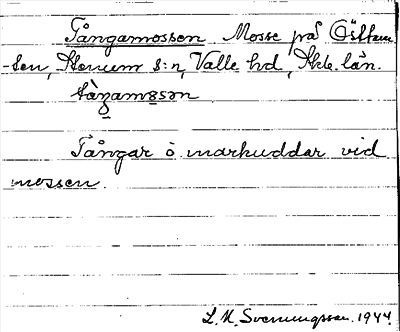 Tångamossen Mosse på Östtom
-ten, Stenum s:n, Valle hd, Skb. län.
tàŋamɷsən
Tångar ö marhuddar vid
mossen.
L. N. Svenungsson. 1944.